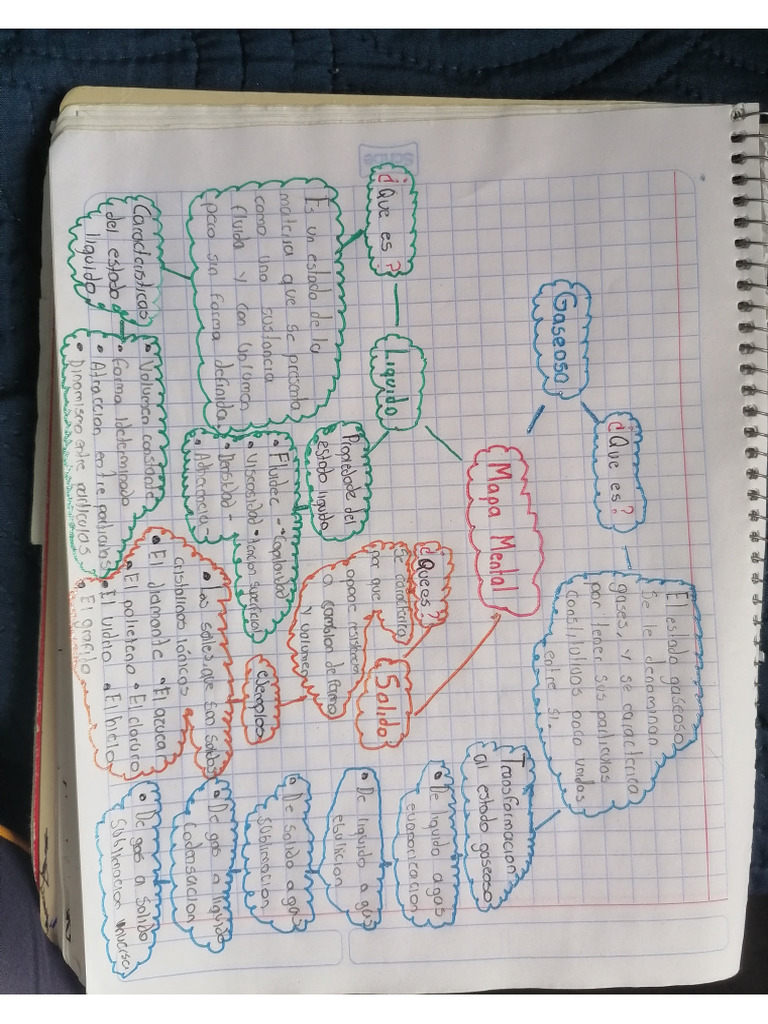 Scribe
Mapa Mental
Gaseoso
¿Que es?
El estado gaseoso
se le denominan
gases, y se caracteriza
por tener sus particulas
constitutivas poco unidas
entre si.
Transformacion
al estado gaseoso
• De liquido a gas
evaporizacion
• De liquido a gas
ebullicion
• De solido a gas
sublimacion
• De gas a liquido
codensacion
• De gas a solido
sublimacion inversa
Liquido
¿Que es?
Es un estado de la
materia que se presenta
como una sustancia
fluida y con volumen
pero sin forma definida
Caracteristicas
del estado
liquido
• Volumen constante
• Forma ideterminado
• Atraccion entre particulas
• Dinamismo entre particulas
Propiedade del
estado liquido
• Fluidez - • Capilaridad
• Viscosidad • tencion superficial
• Densidad -
• Adherencia
Solido
¿Que es?
Se caracteriza
por que
opone resistencia
a cambion de forma
y volumen
ejemplos
• Las sales que son solidos
cristalinos iónicos
• El diamante • El azucar
• El polieteno • El cloruro
• El vidrio • El hielo
• El grafito